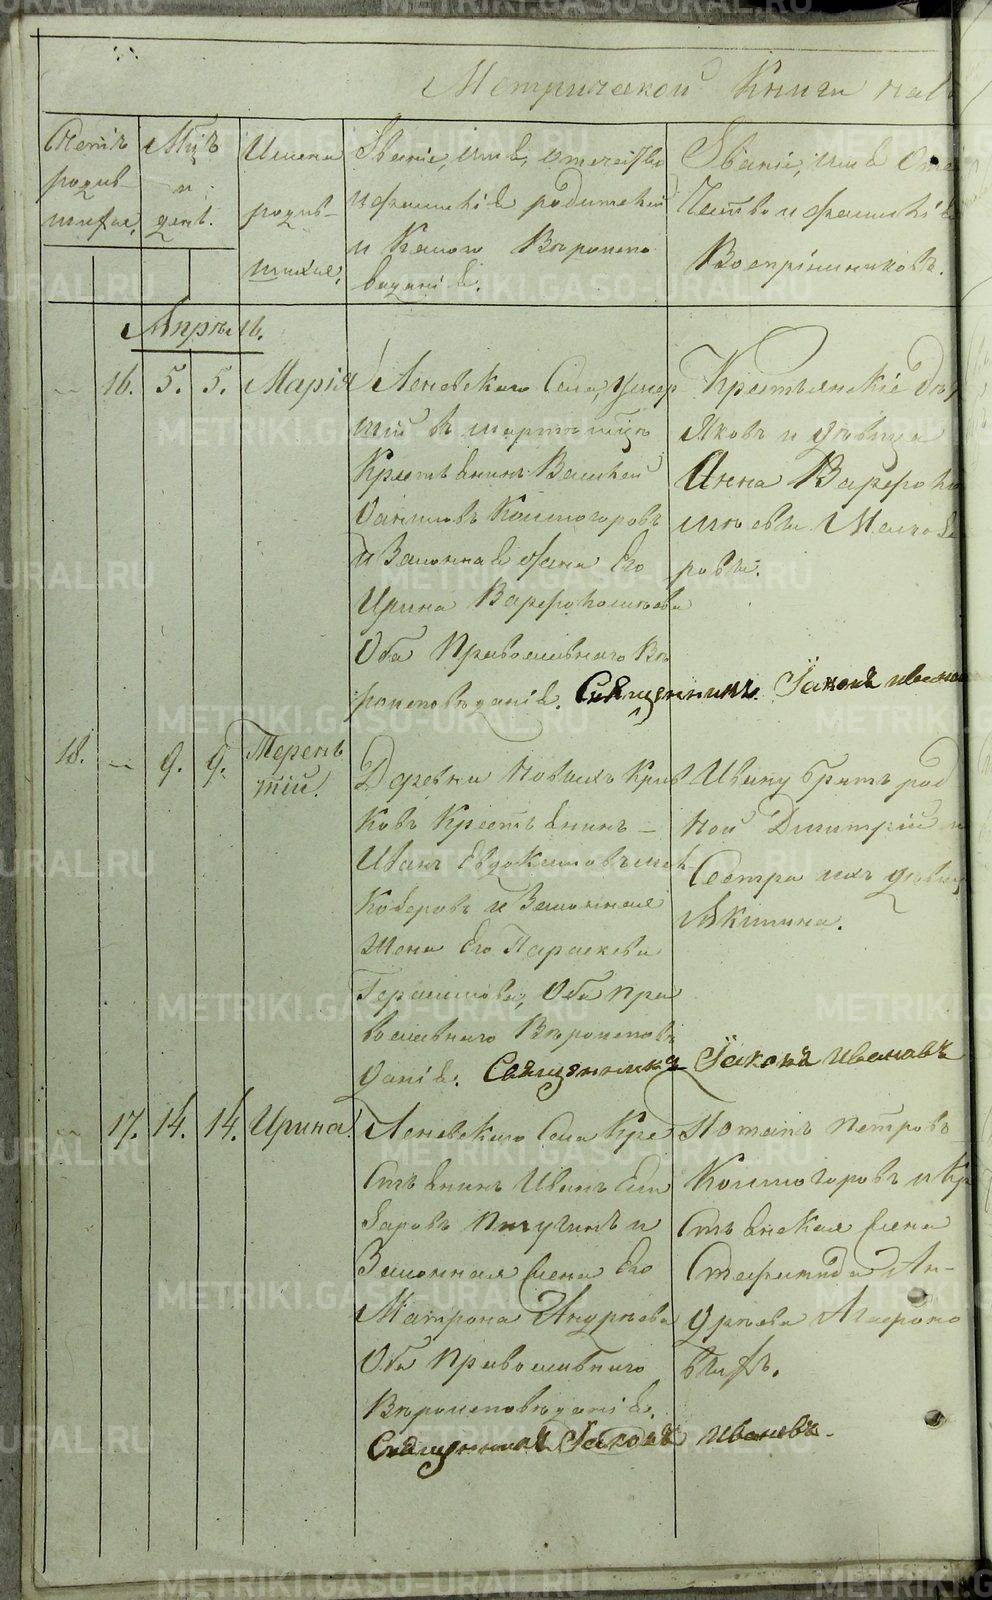 Метрической Книги на
Счетъ
родив-
шихся,
Мцъ
и
дент.
Имена
родив-
шихся,
Званіе, имя, отечество
и фамилія родителей
и Какого Вѣроиспо
веданія.
Званіе, имя Оте
чество и фамилія
Воспріемниковъ.
Апрѣль.
16. 5. 5. Марія
Леневскаго Села,
Крестьянинъ Василей
Даниловъ Колмогоровъ
и Законная жена Его
Ирина Варфоломѣева
Оба Православнаго Вѣ
роисповѣданія. Священникъ Іаковъ Иванов
Крестьянскіе Дѣ
Яковъ и дѣвица
Анна Варфоло
мѣевы
ровы.
18. — 9. 9. Терень
тій.
Деревни Новыхъ Крив
ковъ Крестьянинъ —
Иванъ Евдокимовъ
и Законная
Жена Его Параскева
Герасимова, Оба пра
вославнаго Вѣроисповѣ
данія. Священникъ Іаковъ Ивановъ
Ивану братъ род
ной Димитрій и
Сестра ихъ дѣвица
Акилина.
17. 14. 14. Ирина.
Леневскаго Села Кре
стьянинъ Иванъ Ели
заровъ Пичугинъ и
Законная жена Его
Матрона Андрѣева
Оба Православнаго
Вѣроисповѣданія.
Священникъ Іаковъ Ивановъ.
Потапъ Петровъ
Колмогоровъ и Кр
стьянская жена
Стефанида Ан-
дрѣева Агафоно
выхъ.
METRIKI.GASO-URAL.RU